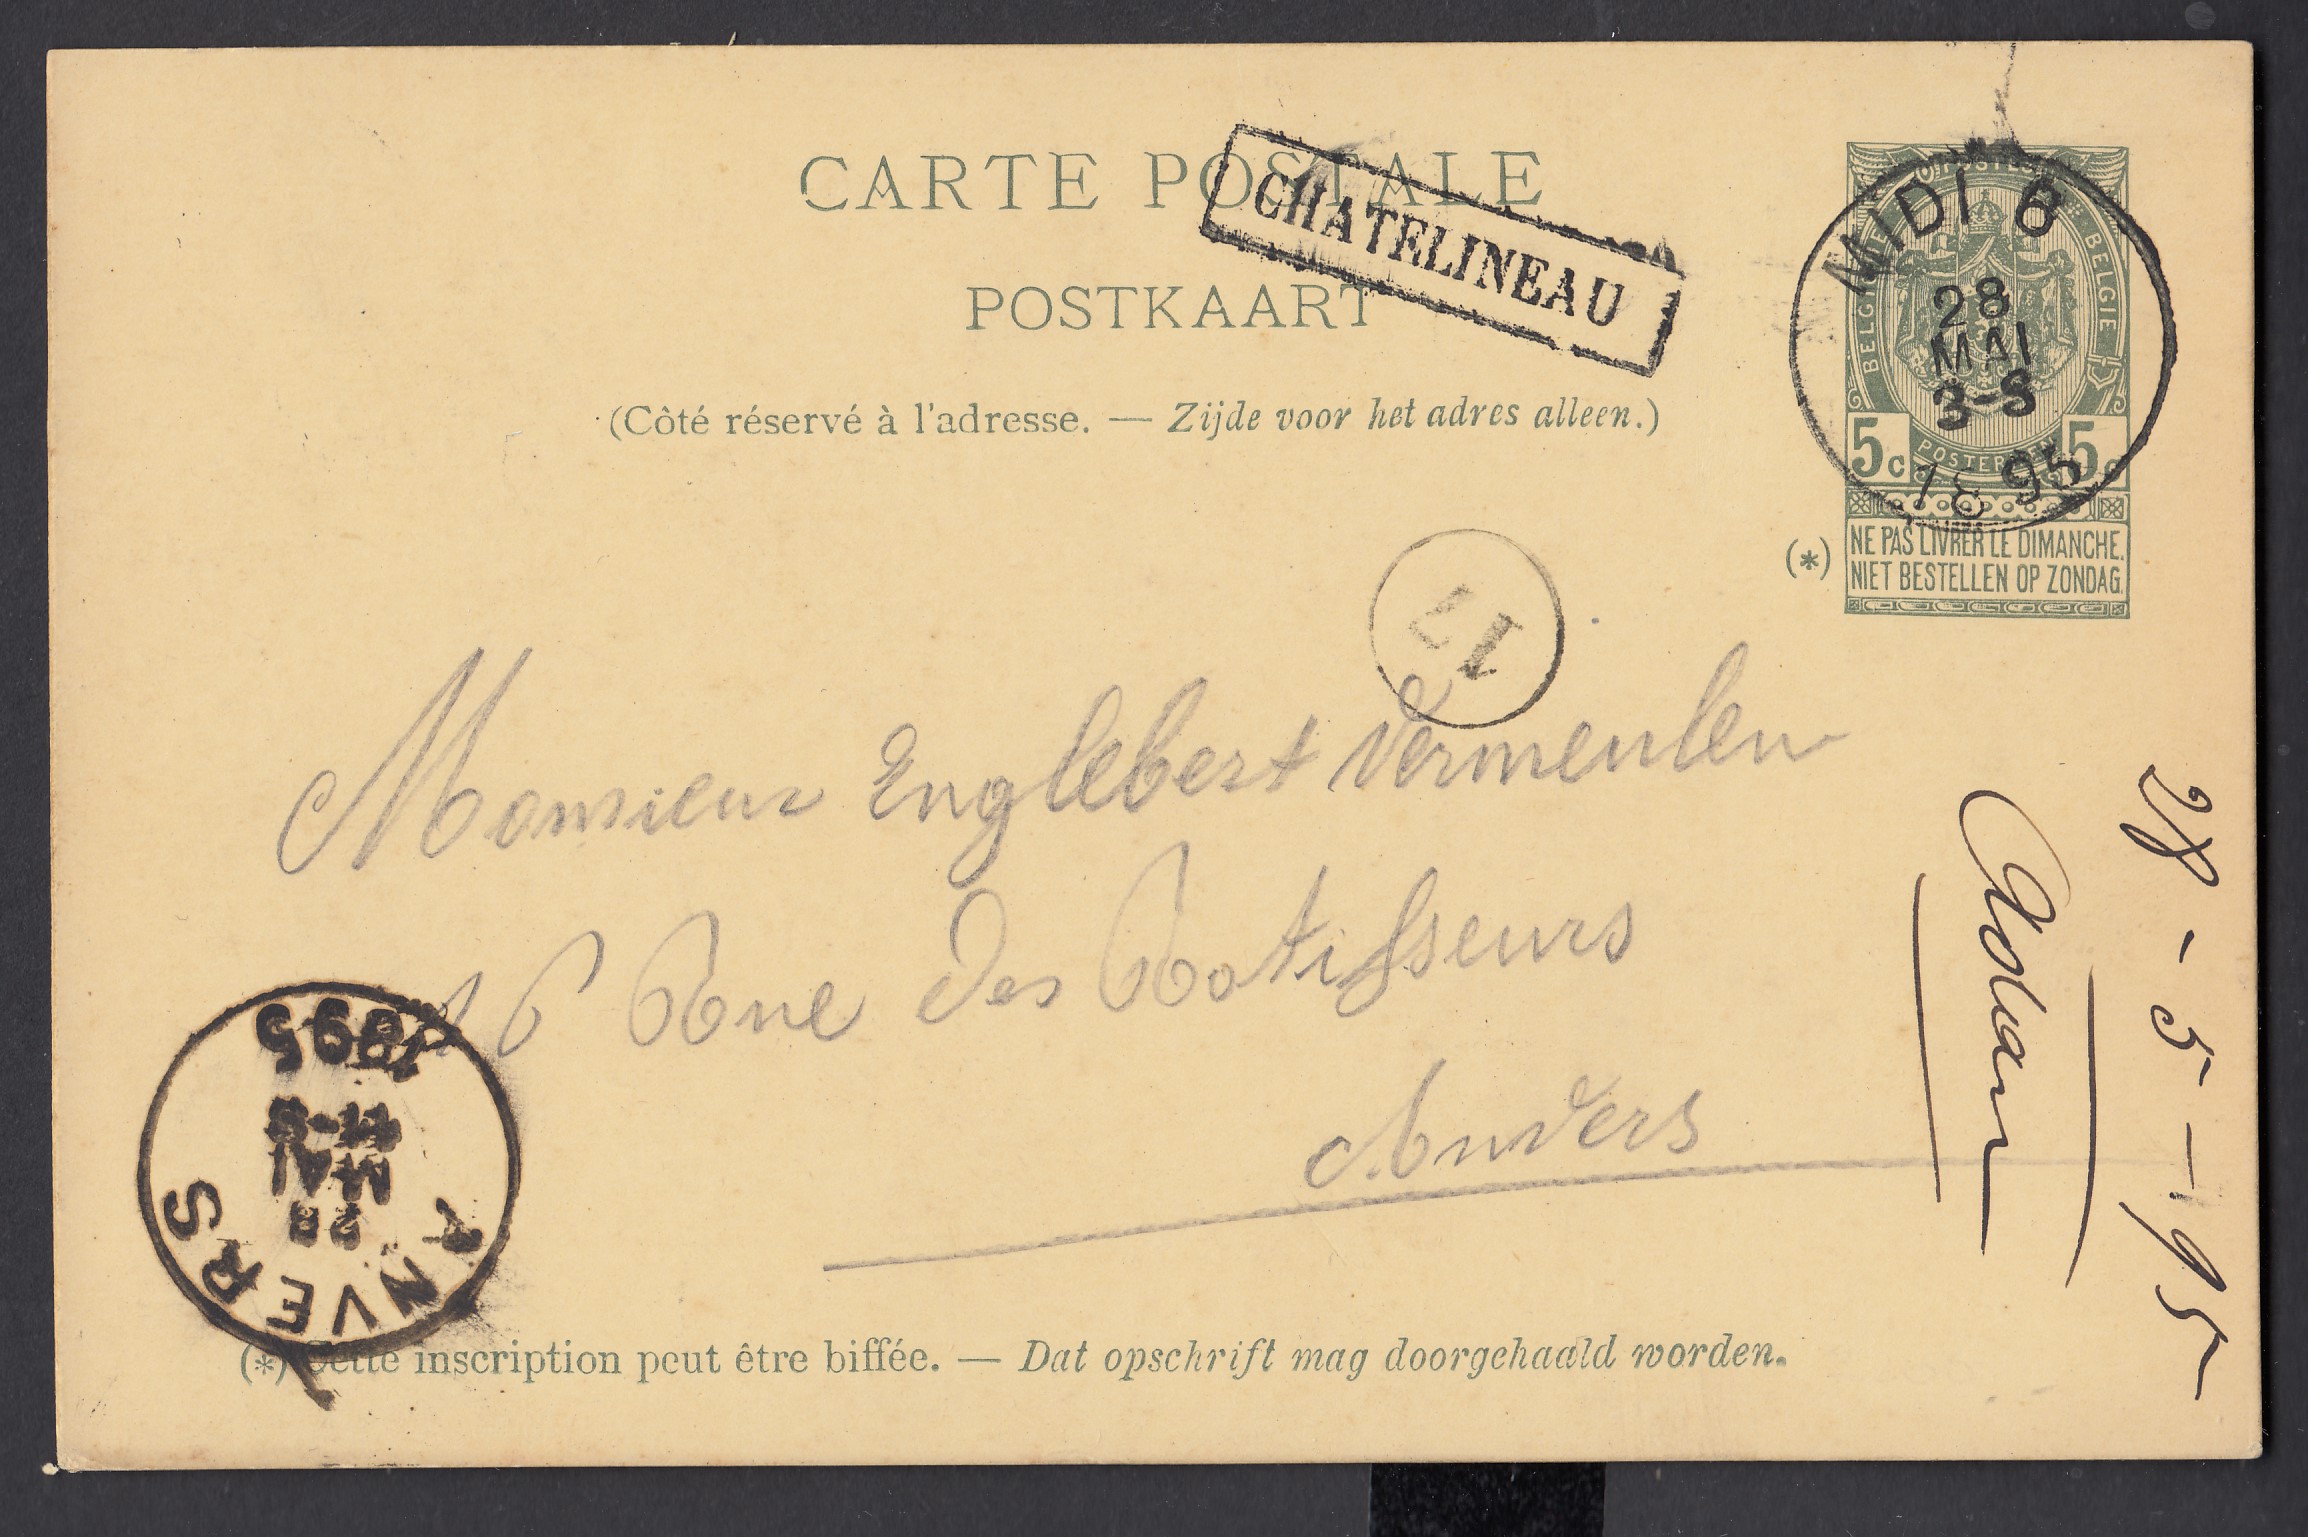 CARTE POSTALE
CHATELINEAU
POSTKAART
(Côté réservé à l'adresse. — Zijde voor het adres alleen.)
POSTES
BELGIQUE BELGIE
POSTERIJEN
5c 5c
NE PAS LIVRER LE DIMANCHE.
NIET BESTELLEN OP ZONDAG.
(*)
MIDI
28
MAI
3-S
95
17
Monsieur Englebert Vermeulen
16 Rue des Rotisseurs
Anvers
28-5-95
Adam
ANVERS
28
MAI
11-S
1895
(*) Cette inscription peut être biffée. — Dat opschrift mag doorgehaald worden.